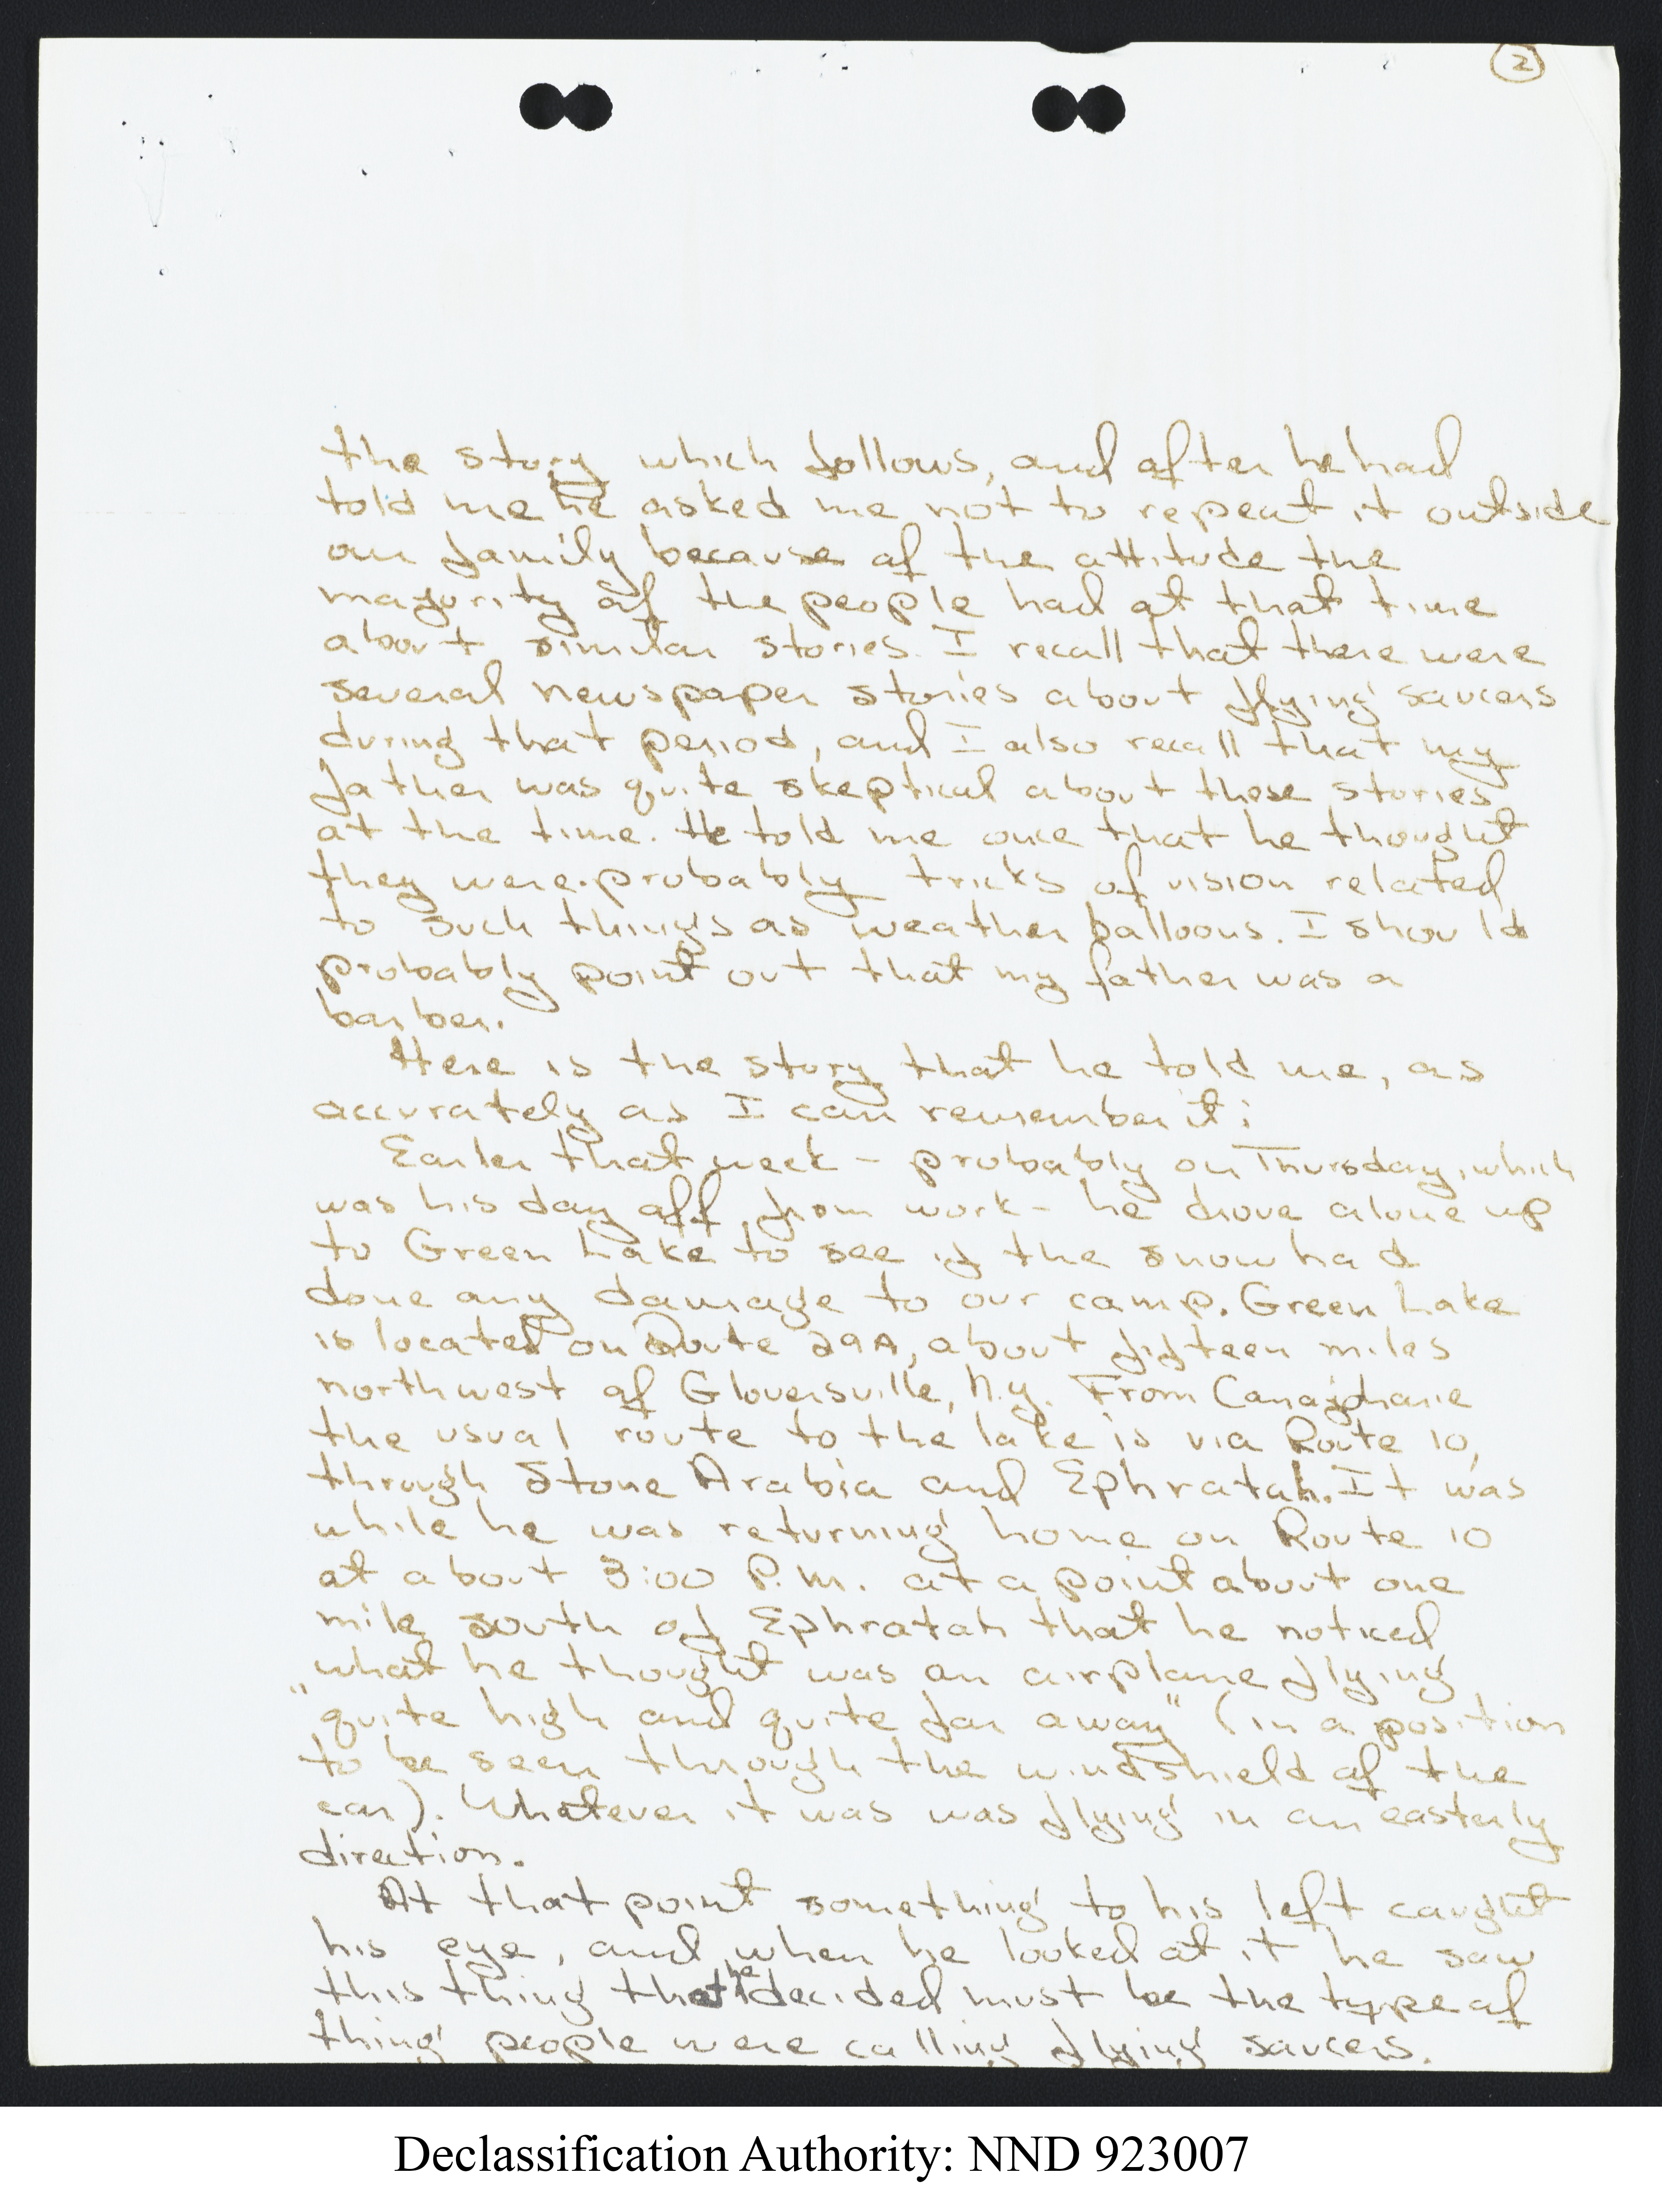 2
the story which follows, and after he had
told me he asked me not to repeat it outside
our family because of the attitude the
majority of the people had at that time
about similar stories. I recall that there were
several newspaper stories about flying saucers
during that period, and I also recall that my
father was quite skeptical about these stories
at the time. He told me once that he thought
they were probably tricks of vision related
to such things as weather balloons. I should
probably point out that my father was a
barber.
Here is the story that he told me, as
accurately as I can remember it:
Earlier that week - probably on Thursday, which
was his day off from work - he drove alone up
to Green Lake to see if the snow had
done any damage to our camp. Green Lake
is located on Route 29A, about fifteen miles
northwest of Gloversville, N.Y. From Canajoharie
the usual route to the lake is via Route 10,
through Stone Arabia and Ephratah. It was
while he was returning home on Route 10
at about 3:00 P.M. at a point about one
mile south of Ephratah that he noticed
what he thought was an airplane flying
"quite high and quite far away" (in a position
to be seen through the windshield of the
car). Whatever it was was flying in an easterly
direction.
At that point something to his left caught
his eye, and when he looked at it he saw
this thing that he decided must be the type of
thing people were calling flying saucers.
Declassification Authority: NND 923007